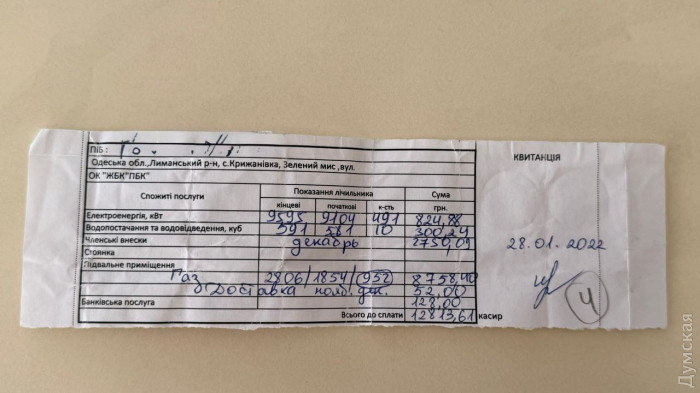 ПІБ :
Одеська обл.,Лиманський р-н, с.Крижанівка, Зелений мис ,вул.
ОК "ЖБК"ПБК"
КВИТАНЦІЯ
Спожиті послуги Показання лічильника Сума
кінцеві початкові к-сть грн.
Електроенергія, кВт 9595 9104 491 824,88
Водопостачання та водовідведення, куб 591 581 10 300,24
Членські внески декабрь 2750,09
Стоянка
28.01.2022
Підвальне приміщення
Газ 2806/1854/(952) 8758,40
Доставка 52.00
4
Банківська послуга 128,00
Всього до сплати 12813,61 касир
Думская